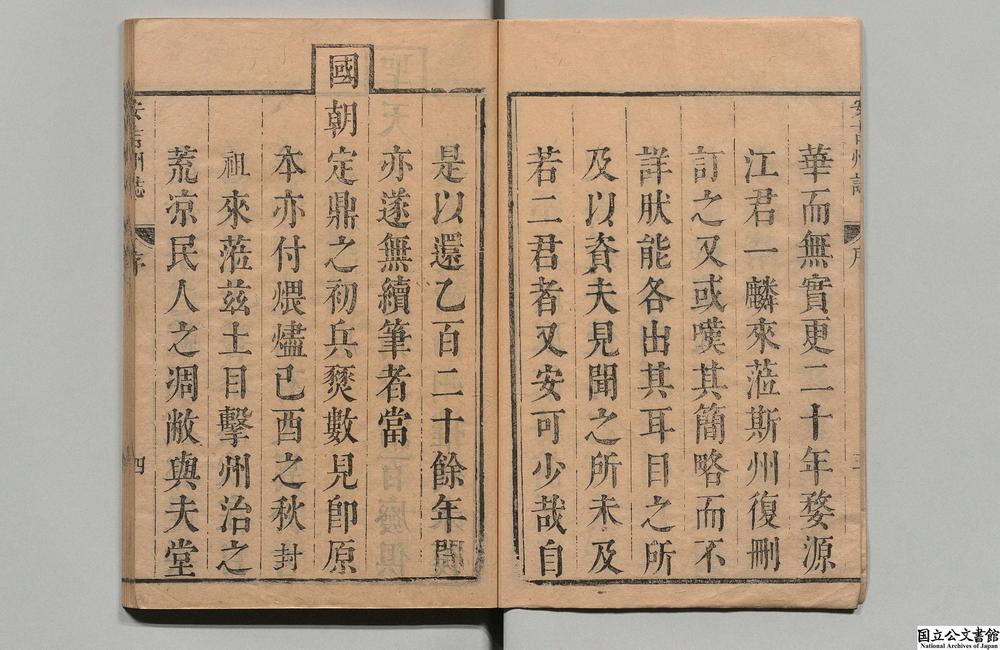 華而無實更二十年婺源
江君一麟來蒞斯州復刪
訂之又或嘆其簡略而不
詳肰能各出其耳目之所
及以資夫見聞之所未及
若二君者又安可少哉自
是以還乙百二十餘年間
亦遂無續筆者當
國朝定鼎之初兵燹數見卽原
本亦付煨燼已酉之秋封
祖來蒞兹土目擊州治之
荒凉民人之凋敝與夫堂
安吉州誌
序
四
国立公文書館
National Archives of Japan